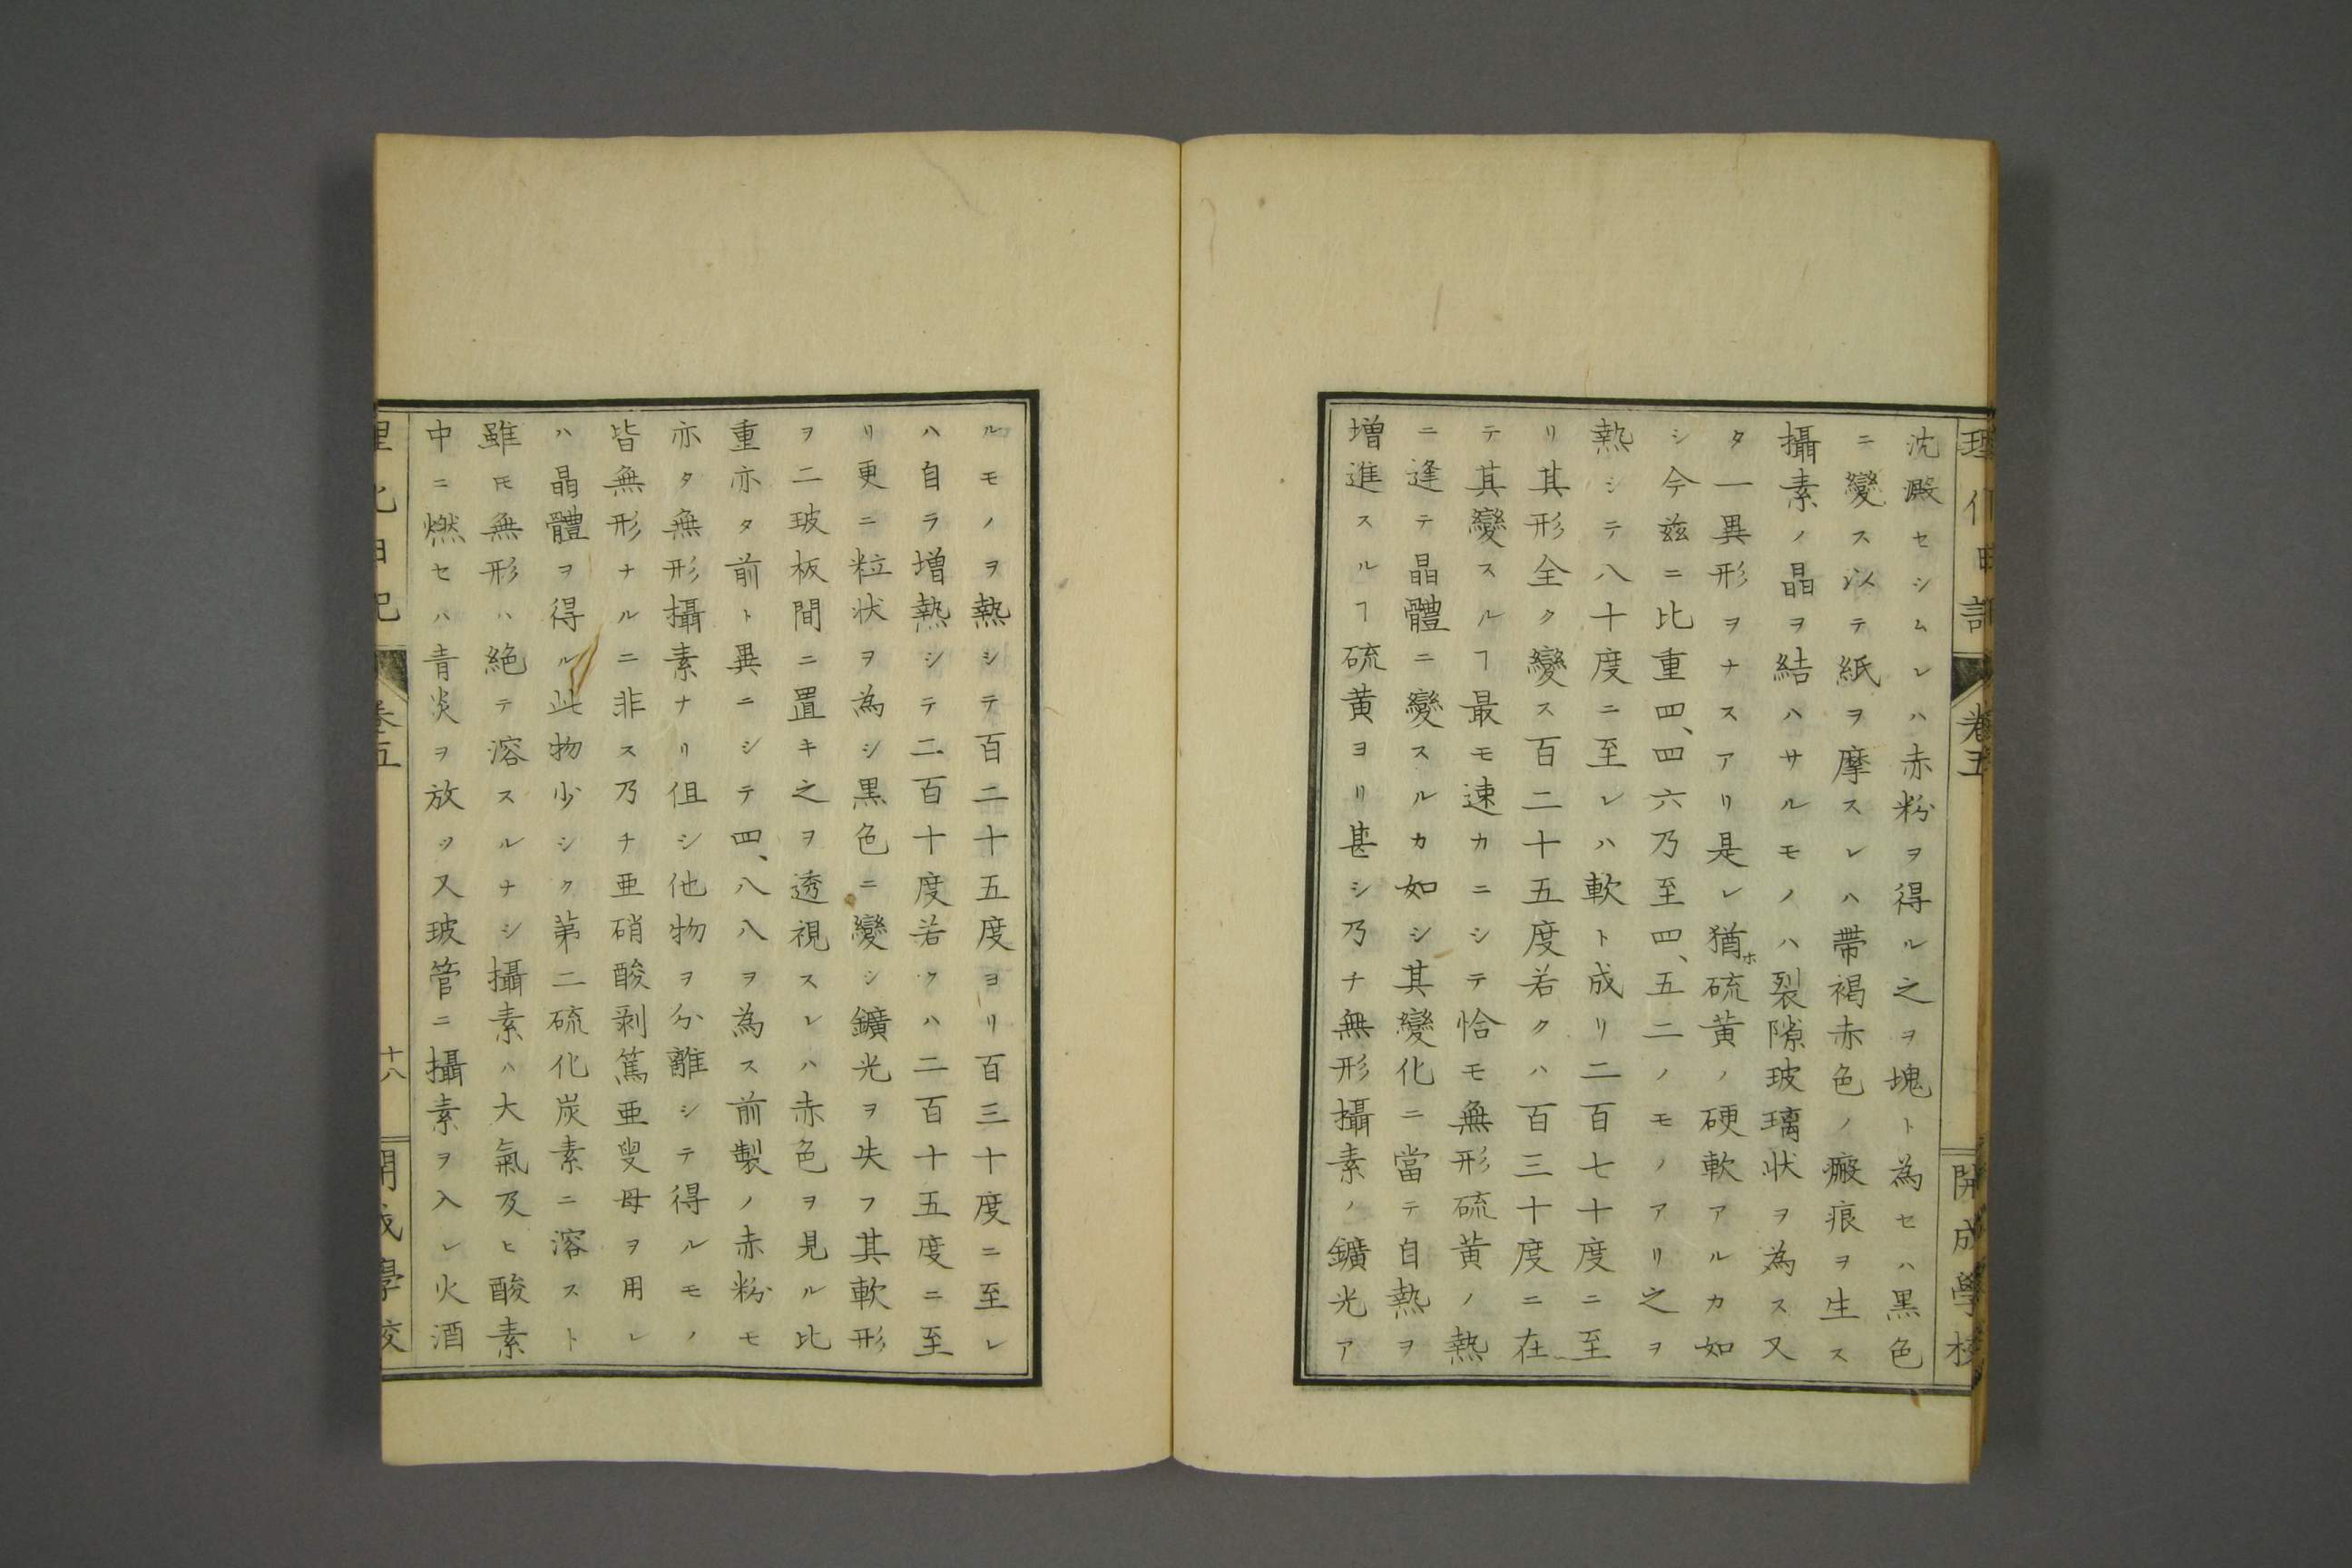 沈澱セシムレハ赤粉ヲ得ル之ヲ塊ト為セハ黒色
ニ變ス以テ紙ヲ摩スレハ帶褐赤色ノ瘢痕ヲ生ス
攝素ノ晶ヲ結ハサルモノハ裂隙玻璃状ヲ為ス又
タ一異形ヲナスアリ是レ猶ホ硫黄ノ硬軟アルカ如
シ今茲ニ比重四、四六乃至四、五二ノモノアリ之ヲ
熱シテ八十度ニ至レハ軟ト成リ二百七十度ニ至
リ其形全ク變ス百二十五度若クハ百三十度ニ在
テ其變スルヿ最モ速カニシテ恰モ無形硫黄ノ熱
ニ逢テ晶體ニ變スルカ如シ其變化ニ當テ自熱ヲ
増進スルヿ硫黄ヨリ甚シ乃チ無形攝素ノ鑛光ア
ルモノヲ熱シテ百二十五度ヨリ百三十度ニ至レ
ハ自ラ増熱シテ二百十度若クハ二百十五度ニ至
リ更ニ粒状ヲ為シ黒色ニ變シ鑛光ヲ失フ其軟形
ヲ二玻板間ニ置キ之ヲ透視スレハ赤色ヲ見ル比
重亦タ前ト異ニシテ四、八八ヲ為ス前製ノ赤粉モ
亦タ無形攝素ナリ但シ他物ヲ分離シテ得ルモノ
皆無形ナルニ非ス乃チ亜硝酸剥篤亜叟母ヲ用レ
ハ晶體ヲ得ル此物少シク苐二硫化炭素ニ溶スト
雖𪜈無形ハ絶テ溶スルナシ攝素ハ大氣及ヒ酸素
中ニ燃セハ青炎ヲ放ツ又玻管ニ攝素ヲ入レ火酒
卷五
十八
開成學校